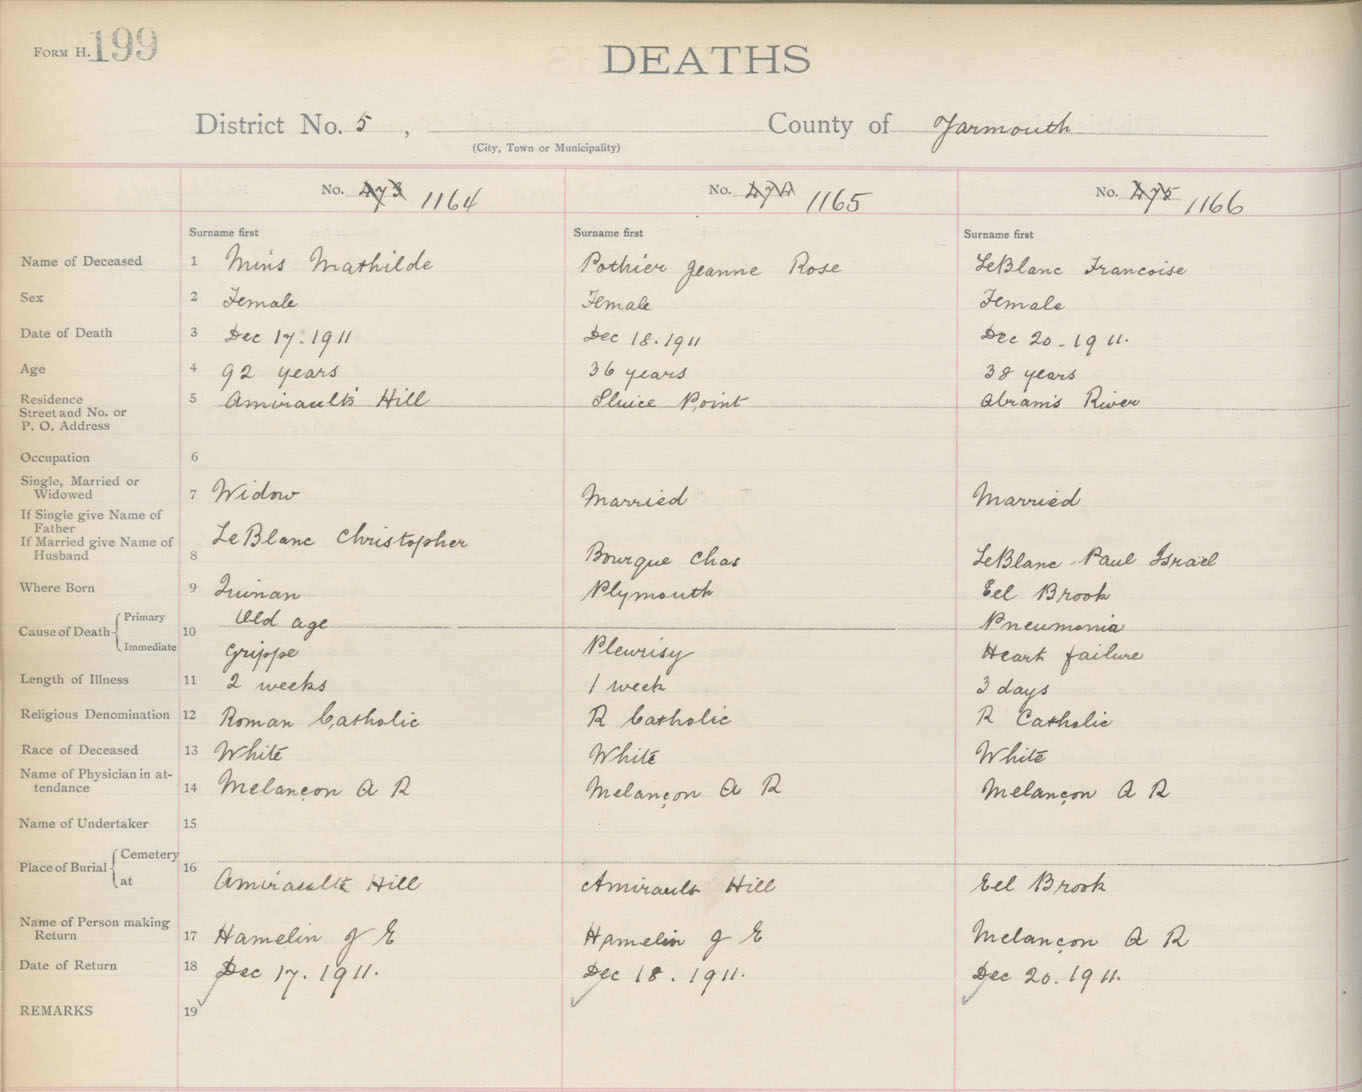 FORM H. 199
DEATHS
District No. 5 , County of Yarmouth
(City, Town or Municipality)
No. 473 1164 No. 474 1165 No. 475 1166
Surname first Surname first Surname first
Name of Deceased 1 Mins Mathilde Pothier Jeanne Rose LeBlanc Francoise
Sex 2 Female Female Female
Date of Death 3 Dec 17. 1911 Dec 18. 1911 Dec 20. 1911.
Age 4 92 years 36 years 38 years
Residence 5 Amirault's Hill Sluice Point Abram's River
Street and No. or
P. O. Address
Occupation 6
Single, Married or
Widowed 7 Widow Married Married
If Single give Name of
Father
If Married give Name of LeBlanc Christopher
Husband 8 Bourque Chas LeBlanc Paul Israël
Where Born 9 Quinan Plymouth Eel Brook
Cause of Death 10 Primary Old age Pneumonia
Immediate Grippe Pleurisy Heart failure
Length of Illness 11 2 weeks 1 week 3 days
Religious Denomination 12 Roman Catholic R Catholic R Catholic
Race of Deceased 13 White White White
Name of Physician in at-
tendance 14 Melançon A R Melançon A R Melançon A R
Name of Undertaker 15
Place of Burial 16 Cemetery
at Amiraults Hill Amiraults Hill Eel Brook
Name of Person making
Return 17 Hamelin J E Hamelin J E Melançon A R
Date of Return 18 Dec 17. 1911. Dec 18. 1911. Dec 20. 1911.
REMARKS 19